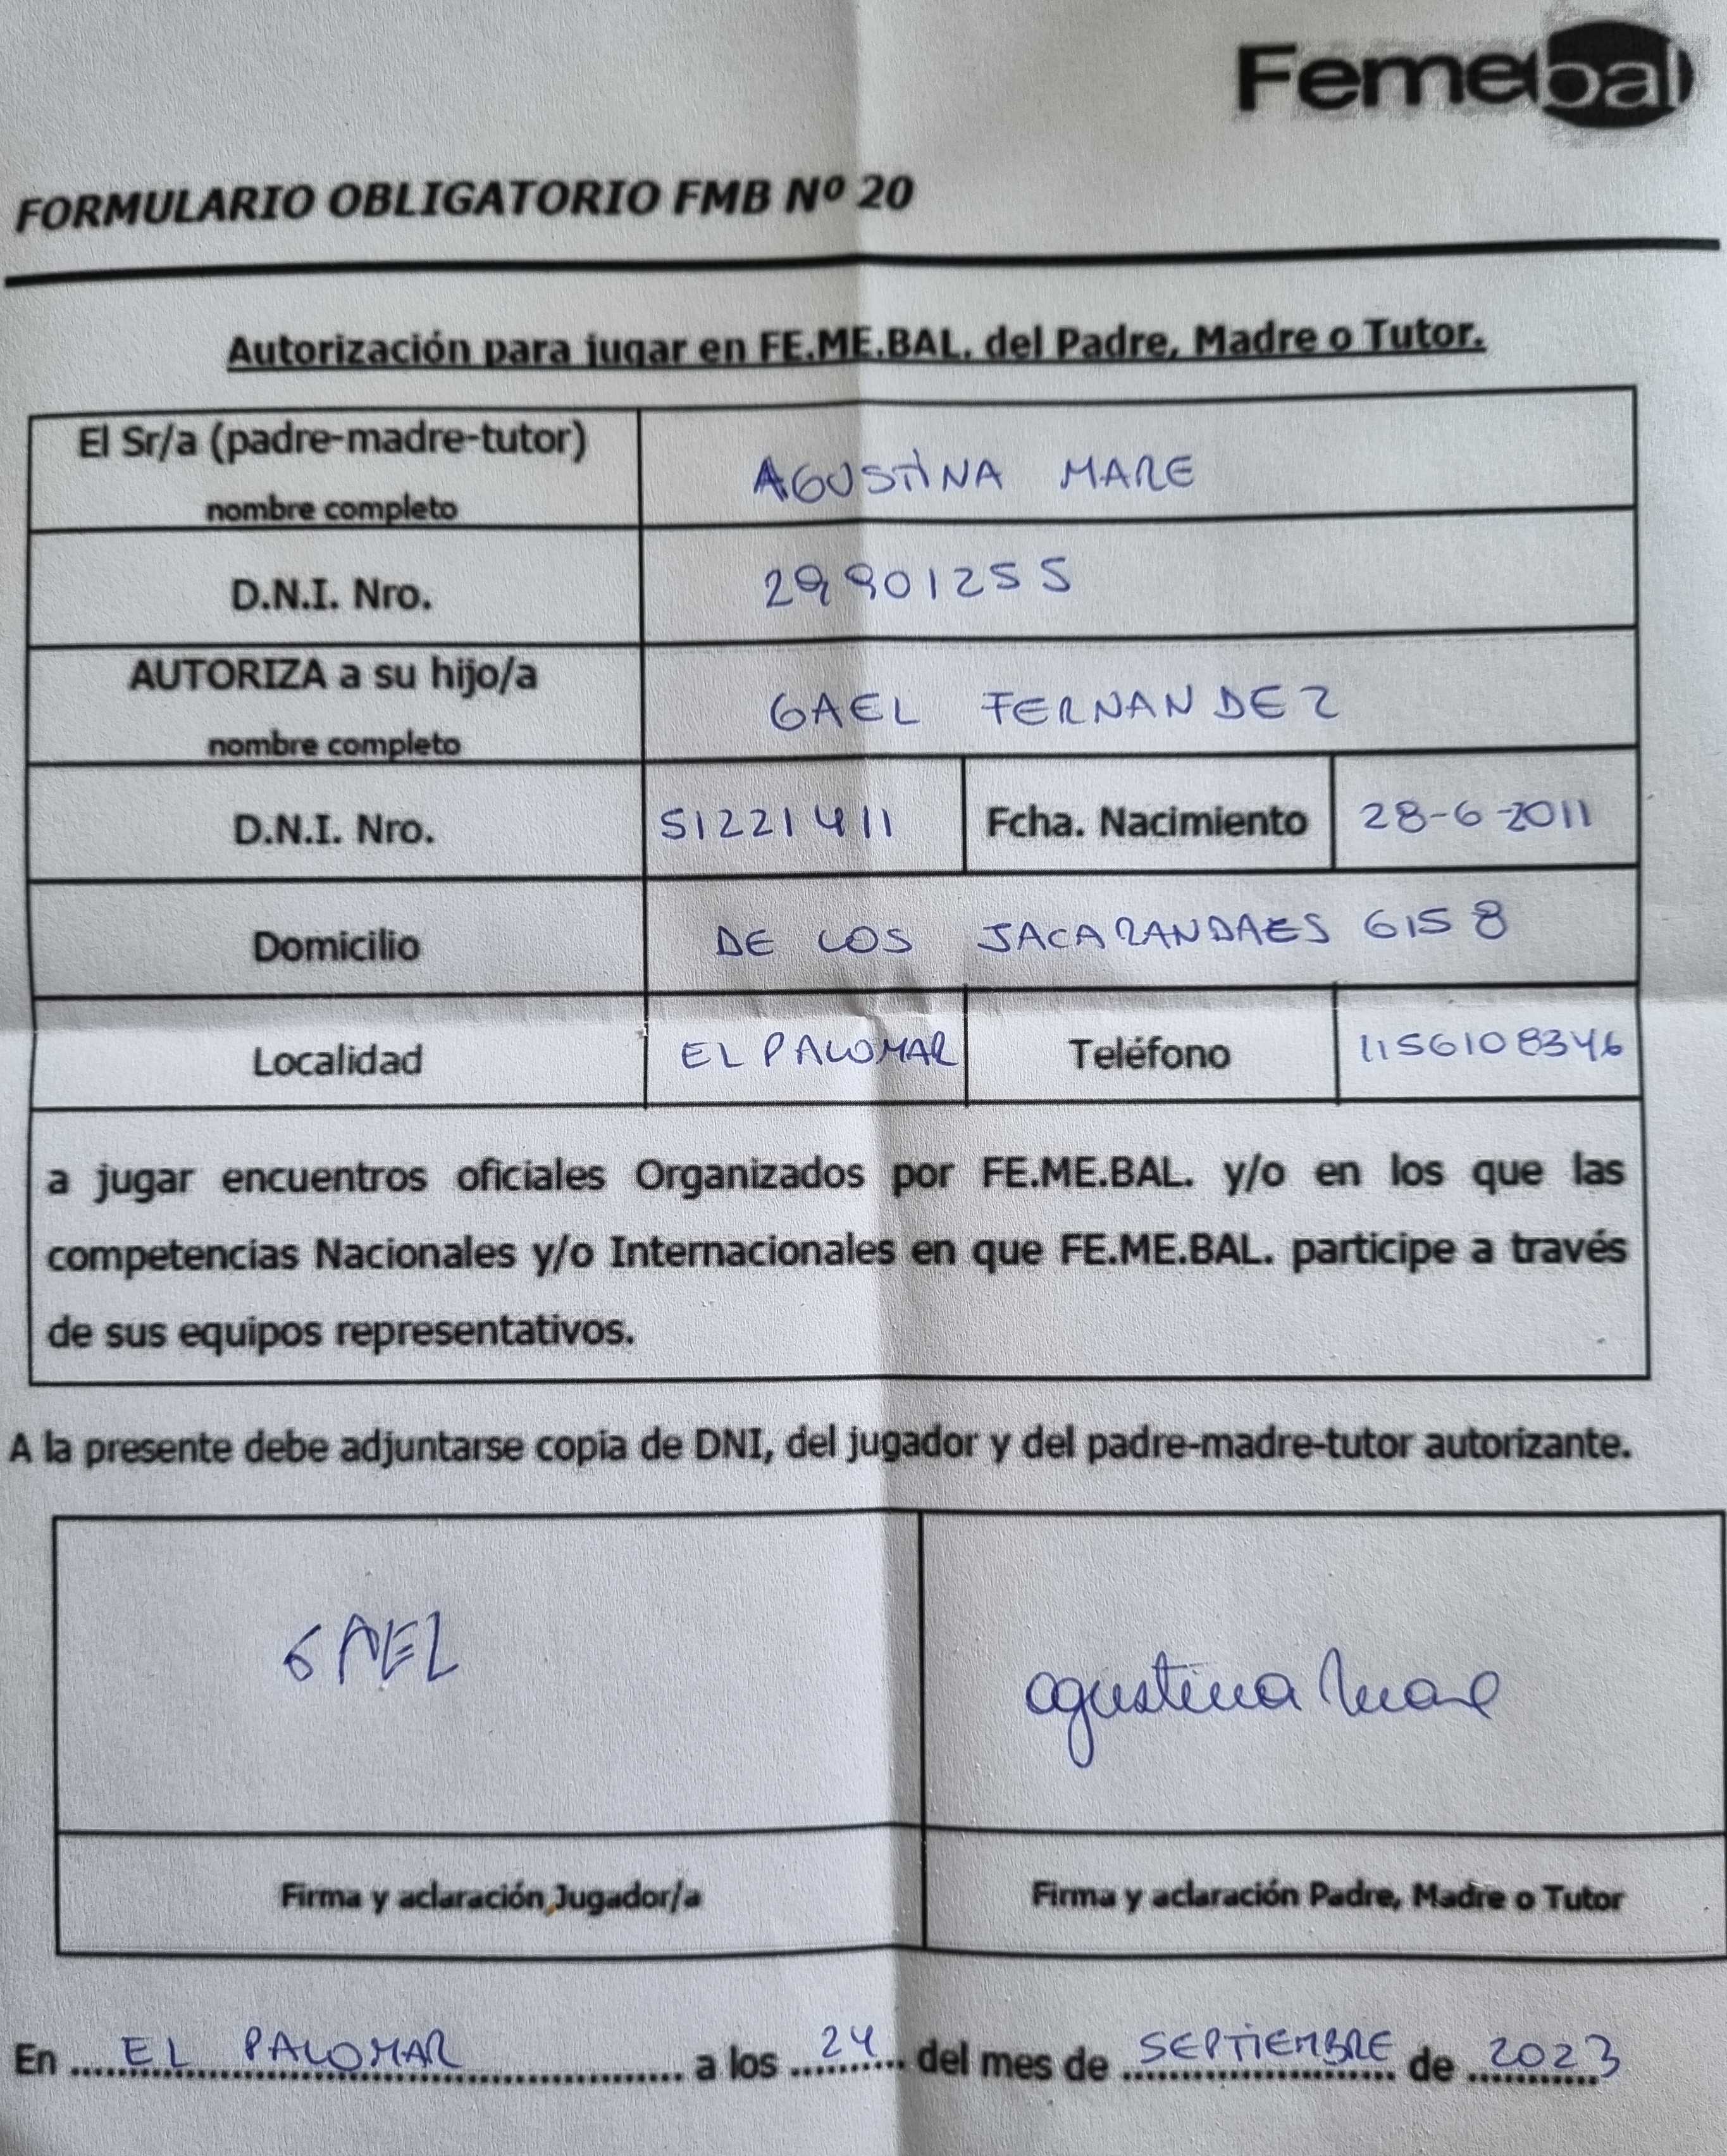 Femebal
FORMULARIO OBLIGATORIO FMB Nº 20
Autorización para jugar en FE.ME.BAL. del Padre, Madre o Tutor.
El Sr/a (padre-madre-tutor)
nombre completo
AGUSTINA MARE
D.N.I. Nro.
29901255
AUTORIZA a su hijo/a
nombre completo
GAEL FERNANDEZ
D.N.I. Nro.
51221411
Fcha. Nacimiento
28-6-2011
Domicilio
DE LOS JACARANDAES 6158
Localidad
EL PALOMAR
Teléfono
1156108346
a jugar encuentros oficiales Organizados por FE.ME.BAL. y/o en los que las
competencias Nacionales y/o Internacionales en que FE.ME.BAL. participe a través
de sus equipos representativos.
A la presente debe adjuntarse copia de DNI, del jugador y del padre-madre-tutor autorizante.
GAEL
agustina Mare
Firma y aclaración Jugador/a
Firma y aclaración Padre, Madre o Tutor
En EL PALOMAR a los 24 del mes de SEPTIEMBRE de 2023